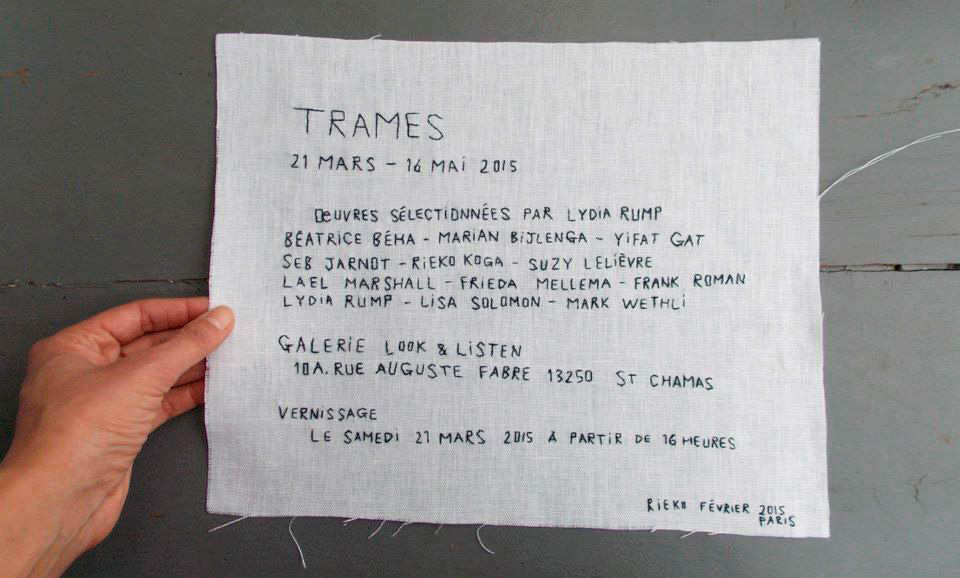 TRAMES
21 MARS - 16 MAi 2015
OEUVRES SÉLECTIONNÉES PAR LYDiA RUMP
BÉATRICE BÉHA - MARIAN BiJLENGA - YiFAT GAT
SEB JARNOT - RiEKO KOGA - SUZY LELiÈVRE
LAEL MARSHALL - FRiEDA MELLEMA - FRANK ROMAN
LYDiA RUMP - LiSA SOLOMON - MARK WETHLi
GALERiE LOOK & LiSTEN
10A. RUE AUGUSTE FABRE 13250 ST CHAMAS
VERNiSSAGE
LE SAMEDi 21 MARS 2015 À PARTiR DE 16 HEURES
RiEKO FÉVRiER 2015
PARiS